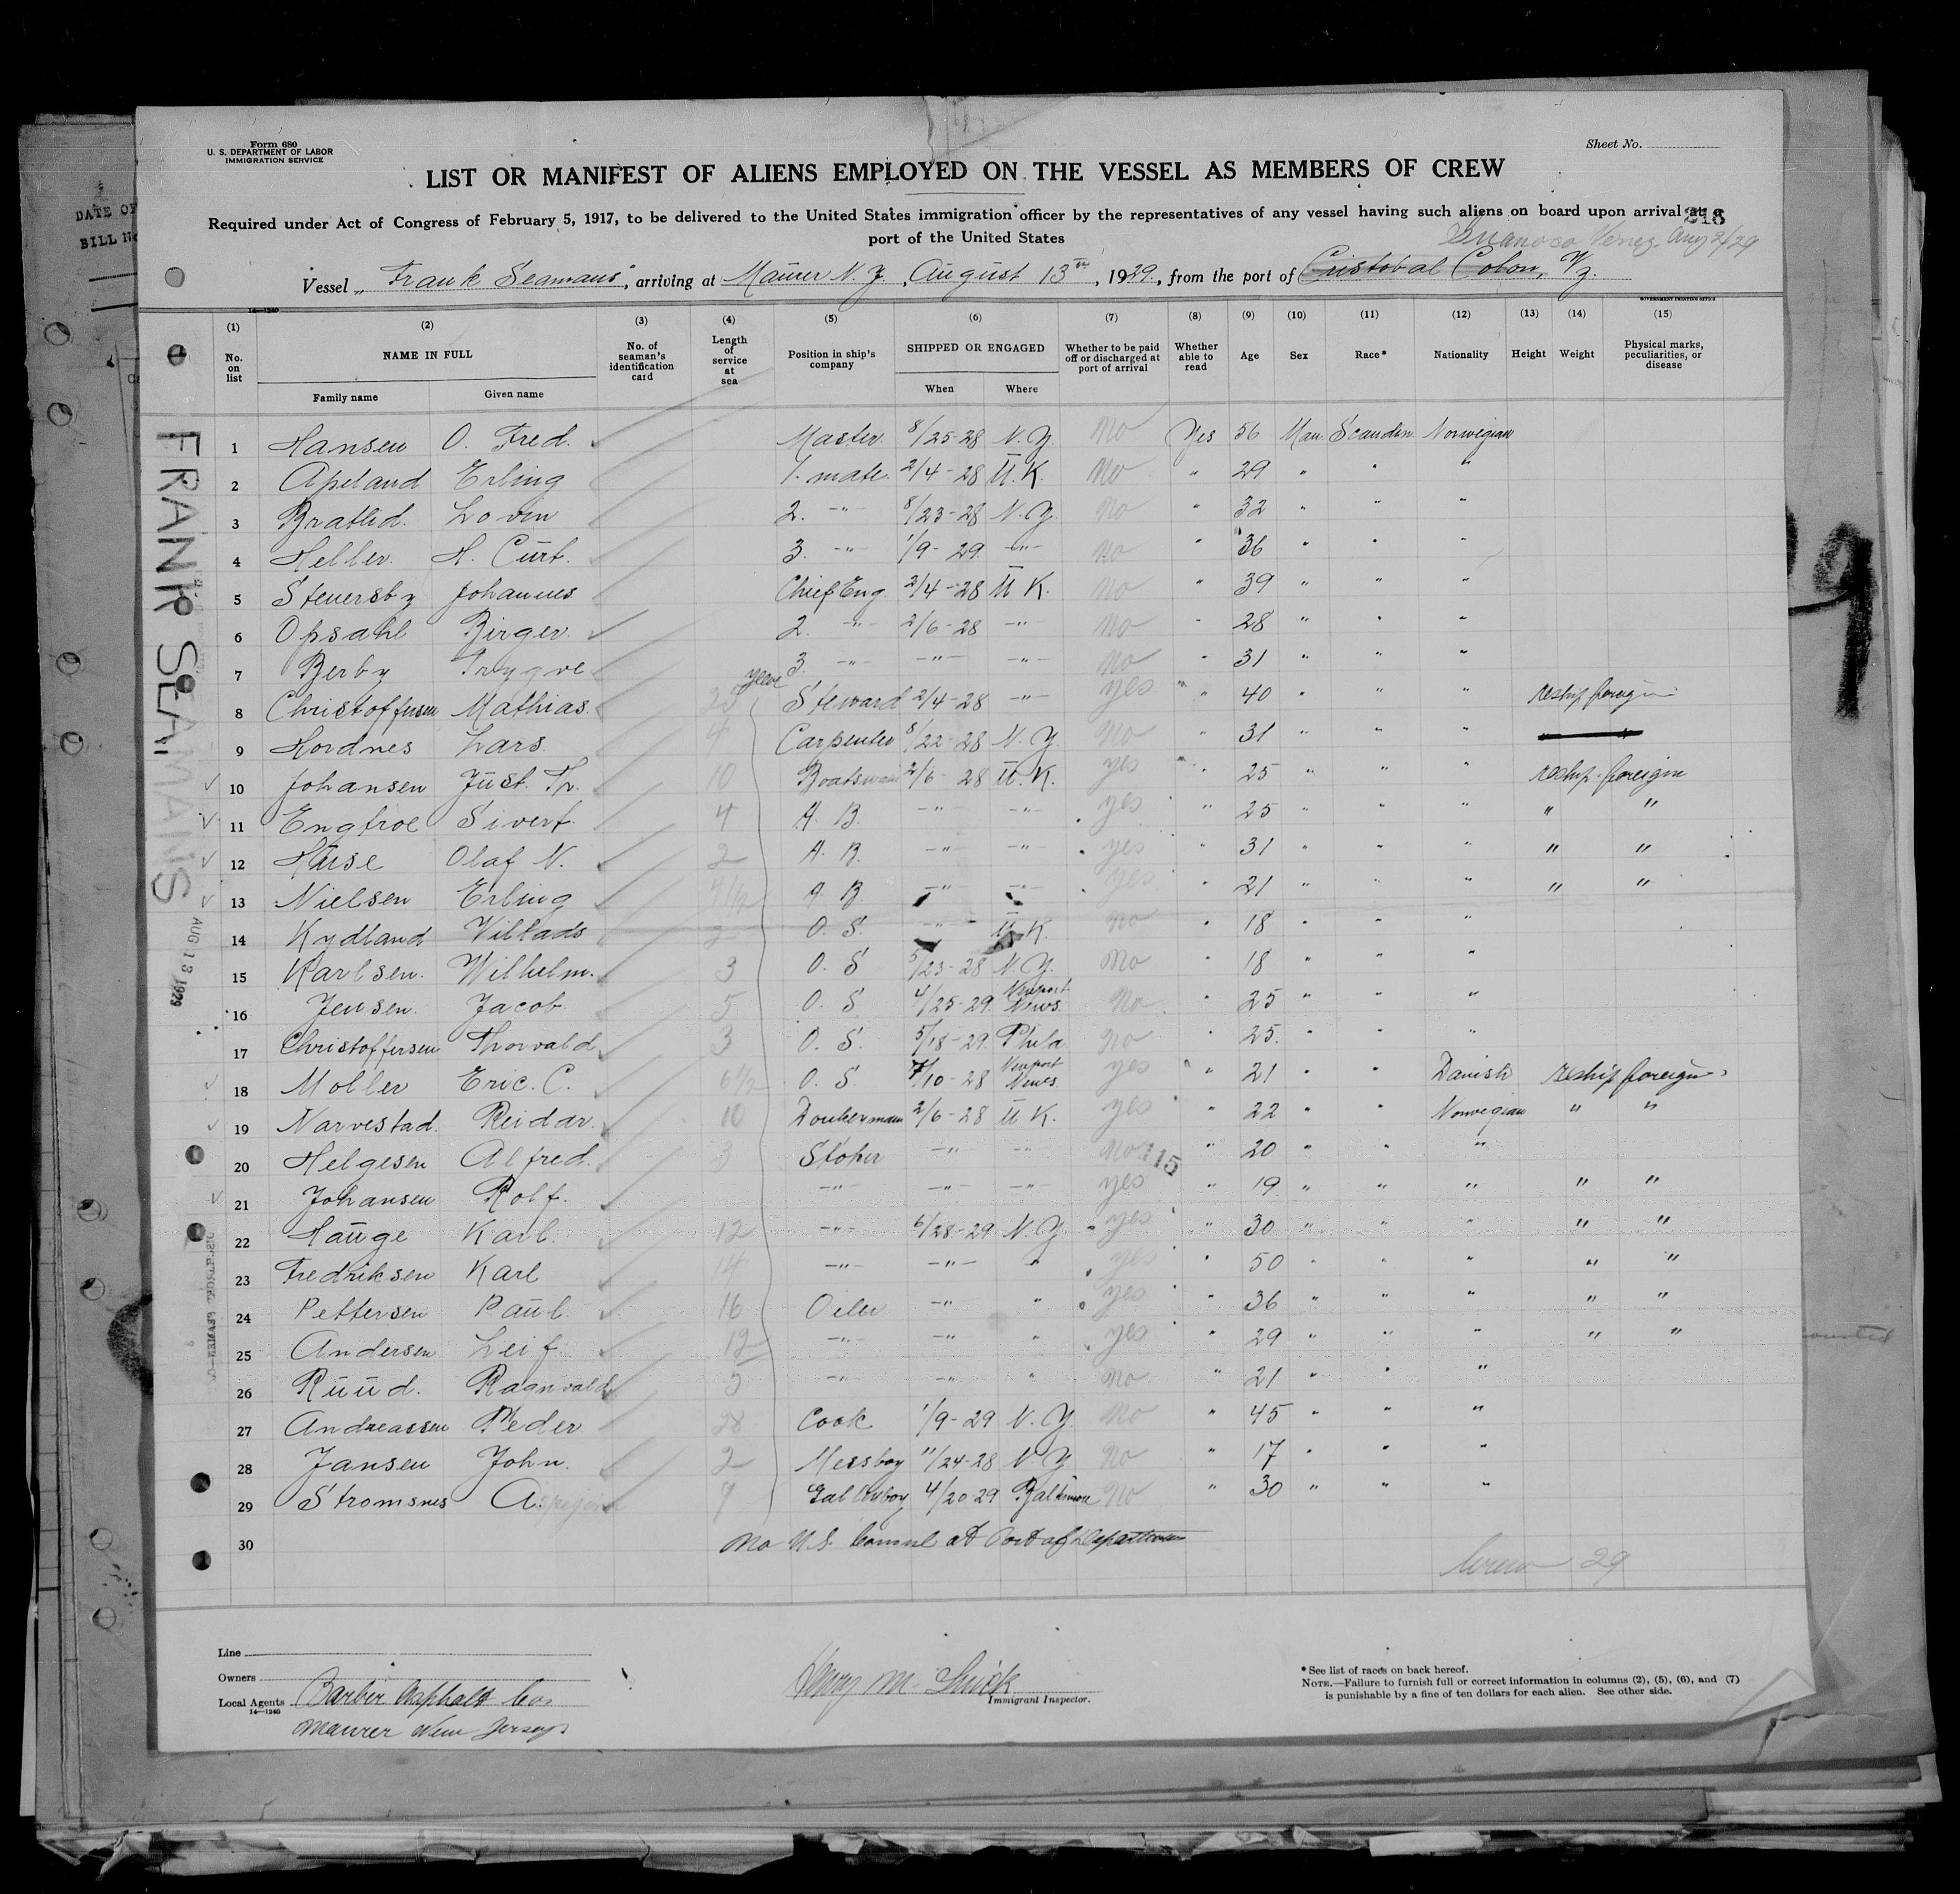 Form 680
U. S. DEPARTMENT OF LABOR
IMMIGRATION SERVICE
Sheet No.
LIST OR MANIFEST OF ALIENS EMPLOYED ON THE VESSEL AS MEMBERS OF CREW
Required under Act of Congress of February 5, 1917, to be delivered to the United States immigration officer by the representatives of any vessel having such aliens on board upon arrival at a
port of the United States
Guanoco Venez. Aug 2/29
Vessel „Frank Seamans", arriving at Maurer N. Y., August 13th, 1929, from the port of Cristobal Colon, Vz.
14—1240
GOVERNMENT PRINTING OFFICE
(1) (2) (3) (4) (5) (6) (7) (8) (9) (10) (11) (12) (13) (14) (15)
No. on list NAME IN FULL No. of seaman's identification card Length of service at sea Position in ship's company SHIPPED OR ENGAGED Whether to be paid off or discharged at port of arrival Whether able to read Age Sex Race* Nationality Height Weight Physical marks, peculiarities, or disease
Family name Given name When Where
1 Hansen O. Fred. Master 8/25-28 N. Y. No Yes 56 Man Scandin. Norwegian
2 Apeland Erling 1. mate. 2/4-28 U.K. No " 29 " " "
3 Bratlid. Lovin 2. -"- 8/23-28 N. Y. No " 32 " " "
4 Heller. H. Curt. 3. -"- 1/9-29. -"- No " 36 " " "
5 Stenersby Johannes Chief Eng. 2/4-28 U K. No " 39 " " "
6 Opsahl Birger. 2. -"- 2/6-28 -"- No " 28 " " "
7 Berby Trygve 3. -"- -"- -"- No " 31 " " "
8 Christoffersen Mathias. 25 years Steward 2/4-28 -"- yes " 40 " " " reship foreign
9 Hordnes Lars. 4 Carpenter 8/22-28 N. Y. No " 31 " " "
10 Johansen Just. Th. 10 Boatswain 2/6-28 U.K. yes " 25 " " " reship foreign
11 Engtroe Sivert 4 A. B. -"- -"- yes " 25 " " " " "
12 Huse Olaf N. 2 A. B. -"- -"- yes " 31 " " " " "
13 Nielsen Erling 4 1/2 A. B. -"- -"- yes " 21 " " " " "
14 Kydland Villads 2 O. S. -"- U.K. no " 18 " " "
15 Karlsen. Wilhelm. 3 O. S 5/23-28 N. Y. No " 18 " " "
16 Jensen. Jacob. 5 O. S 4/25-29. Newport News. No " 25 " " "
17 Christoffersen Thorvald. 3 O. S. 5/18-29. Phila. no " 25. " " "
18 Moller Eric. C. 6 1/2 O. S. 7/10-28 Newport News yes " 21 " " Danish reship foreign
19 Narvestad. Reidar. 10 Donkeyman 2/6-28 U K. yes " 22 " " Norwegian " "
20 Helgesen Alfred. 3 Stoker -"- -"- No 115 " 20 " " "
21 Johansen Rolf. -"- -"- -"- yes " 19 " " " " "
22 Hauge Karl. 12 -"- 6/28-29 N. Y. yes " 30 " " " " "
23 Fredriksen Karl 14 -"- -"- " yes " 50 " " " " "
24 Pettersen Paul. 16 Oiler -"- " yes " 36 " " " " "
25 Andersen Leif. 12 -"- -"- " yes " 29 " " " " "
26 Ruud. Ragnvald 5 -"- -"- " No " 21 " " "
27 Andreassen Peder 28 Cook 1/9-29 N. Y. No " 45 " " "
28 Jansen John. 2 Messboy 11/24-28 N. Y. No " 17 " " "
29 Stromsnes 9 4/20 29 Baltimore No " 30 " " "
30 No U.S. Consul at Port of Departure
Crew 29
Line
Owners
Local Agents Barber Asphalt Co.
14—1240
Maurer New Jersey
Immigrant Inspector.
*See list of races on back hereof.
NOTE.—Failure to furnish full or correct information in columns (2), (5), (6), and (7)
is punishable by a fine of ten dollars for each alien. See other side.
FRANK SEAMANS
AUG 13 1929
DATE OF
BILL No